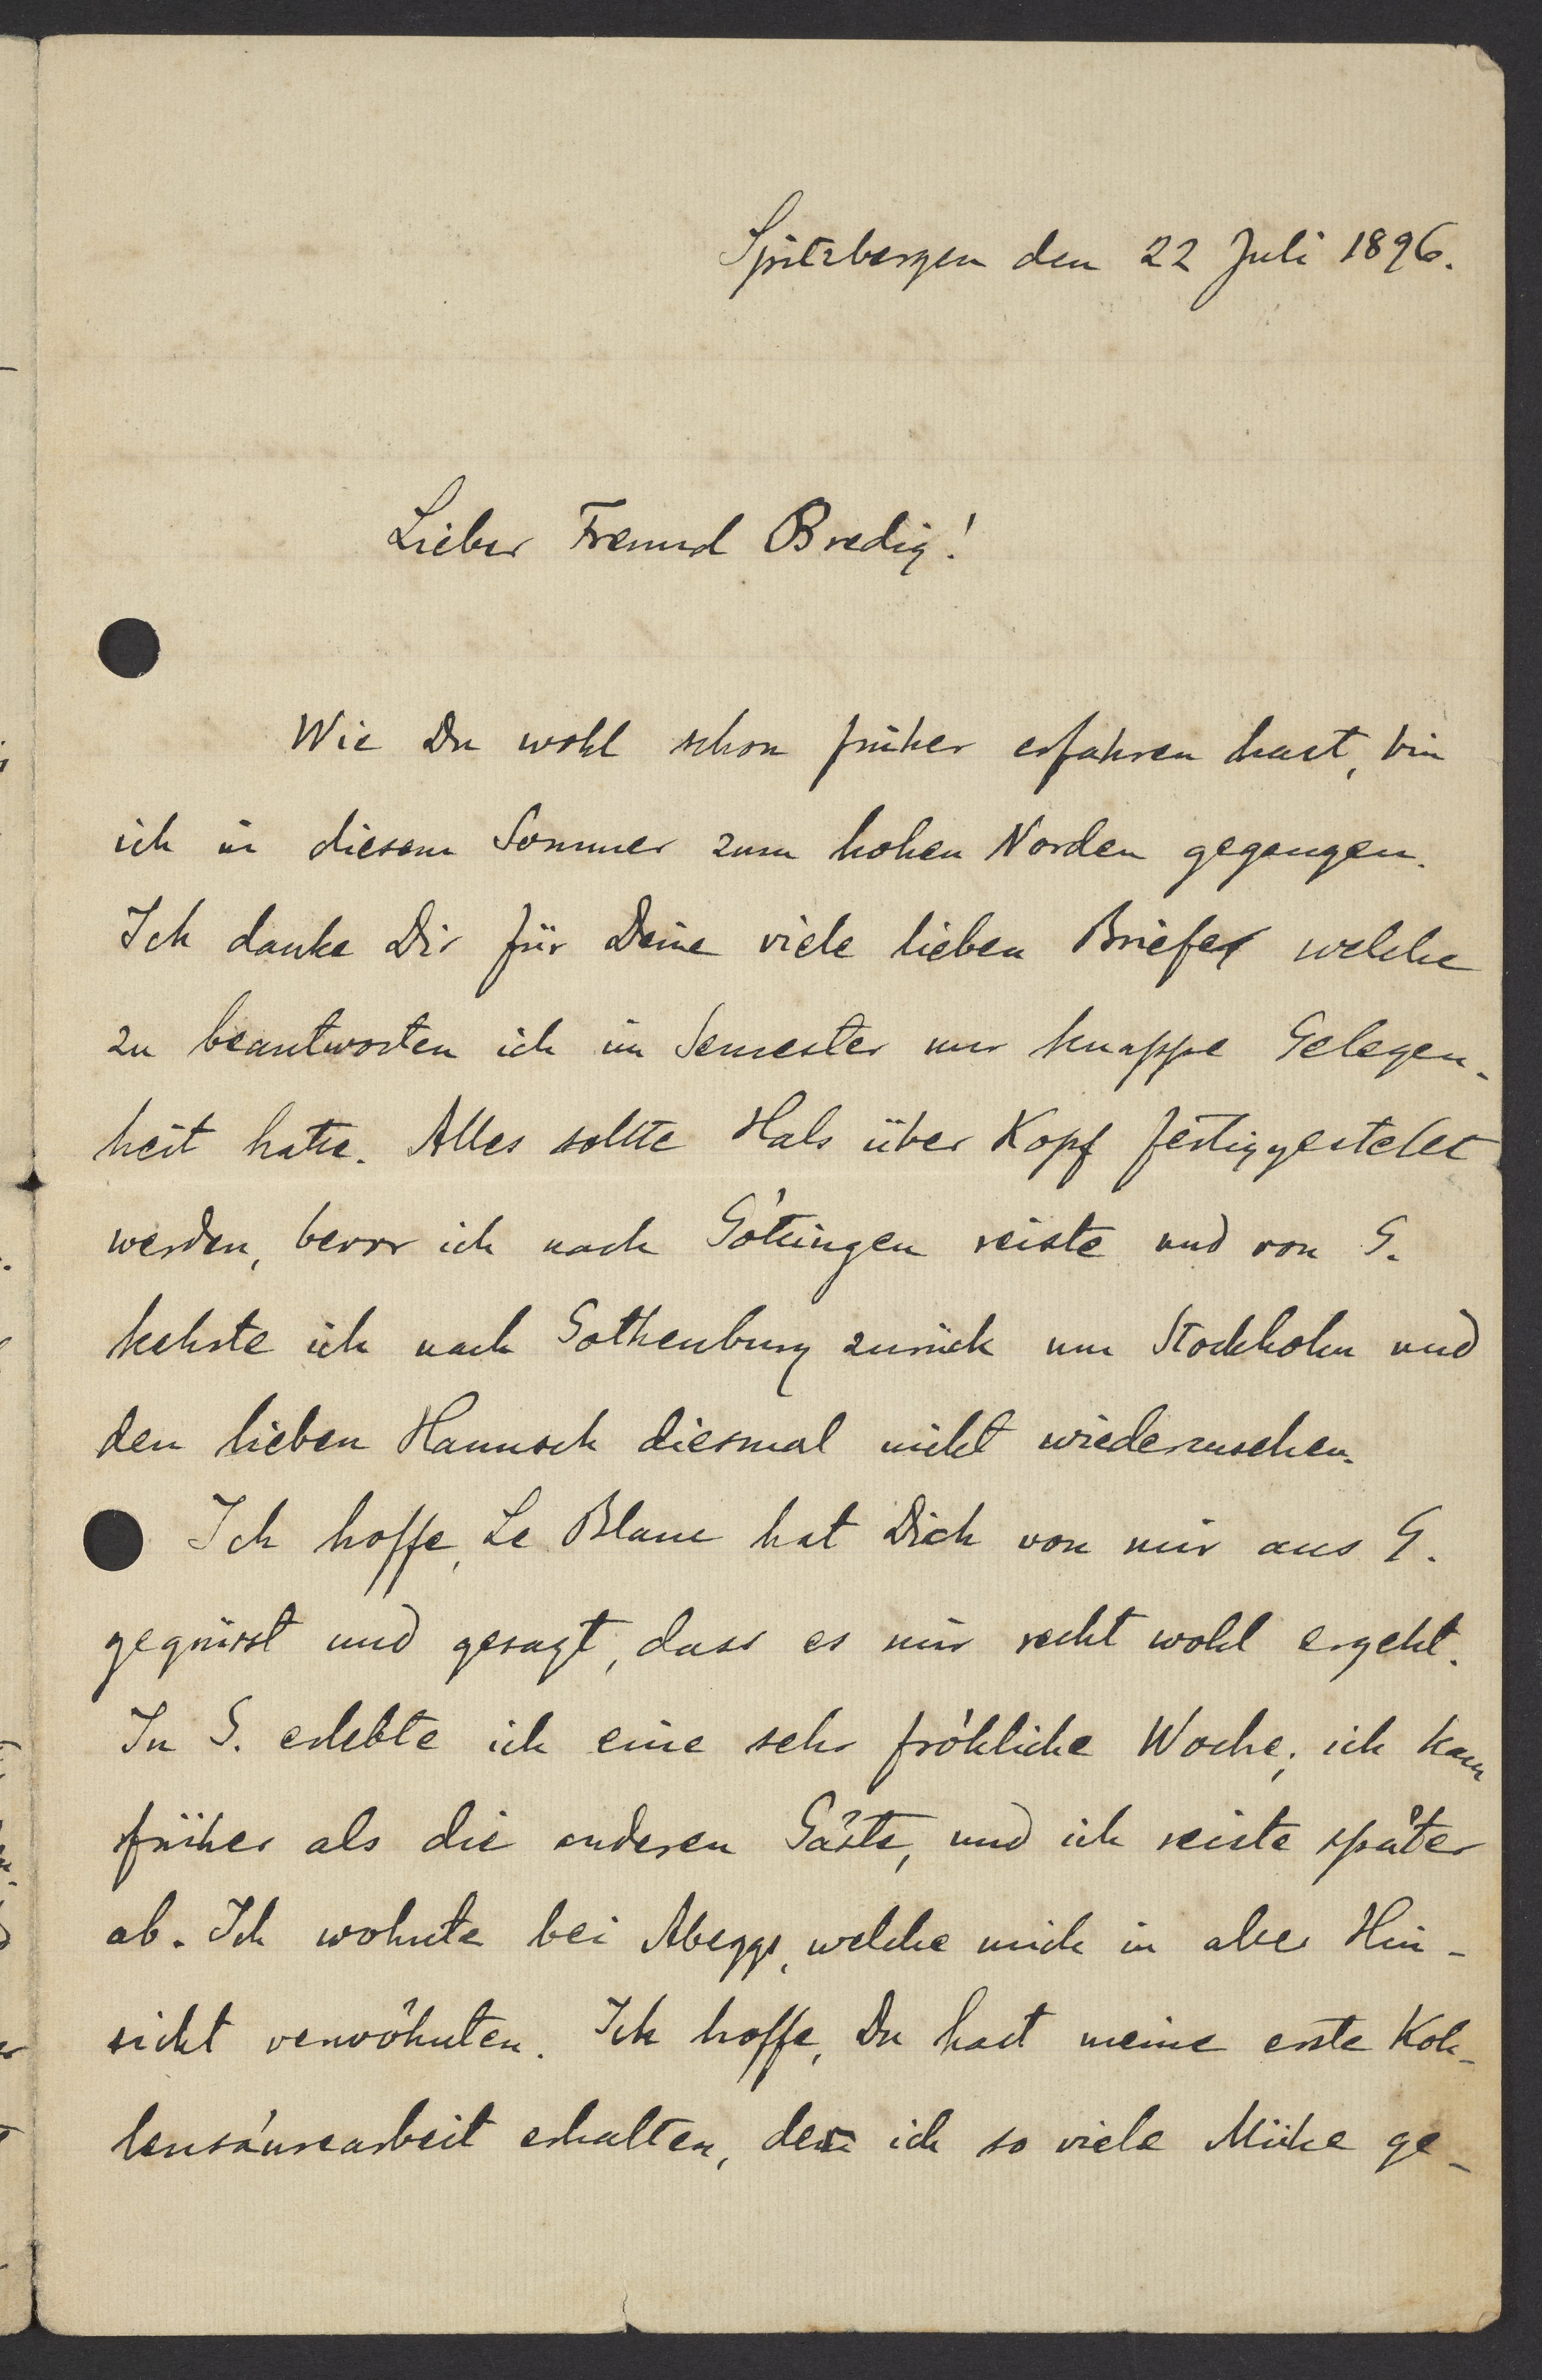 Spitzbergen den 22 Juli 1896.
Lieber Freund Bredig!
Wie Du wohl schon früher erfahren hast, bin
ich in diesem Sommer zum hohen Norden gegangen.
Ich danke Dir für Deine viele lieben Briefe welche
zu beantworten ich im Semester nur knappe Gelegen-
heit hatte. Alles sollte Hals über Kopf fertiggestellt
werden, bevor ich nach Göttingen reiste und von G.
kehrte ich nach Gothenburg zurück um Stockholm und
den lieben Hannsch diesmal nicht wiederzusehen.
Ich hoffe, Le Blanc hat Dich von mir aus G.
gegrüsst und gesagt, dass es mir recht wohl ergeht.
In G. erlebte ich eine sehr fröhliche Woche; ich kam
früher als die anderen Gäste, und ich reiste später
ab. Ich wohnte bei Abeggs, welche mich in aller Hin-
sicht verwöhnten. Ich hoffe, Du hast meine erste Koh-
lensäurearbeit erhalten, der ich so viele Mühe ge-